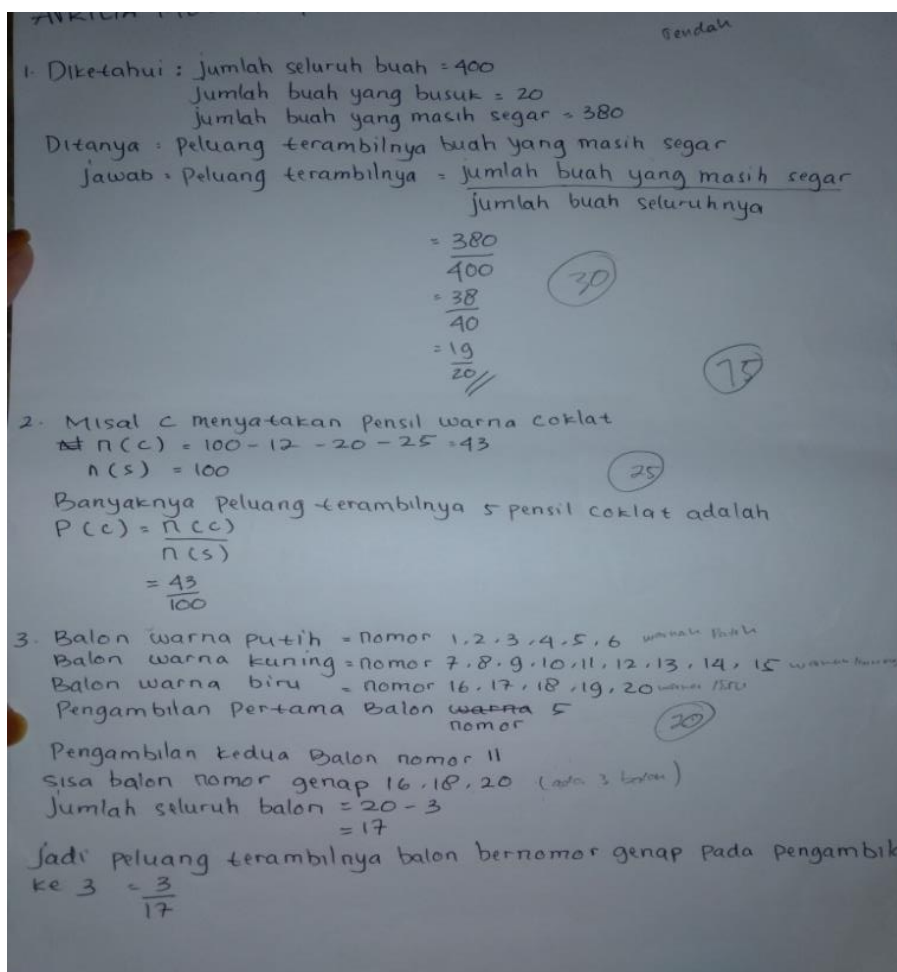 Rendah
1. Diketahui : jumlah seluruh buah = 400
Jumlah buah yang busuk = 20
jumlah buah yang masih segar = 380
Ditanya : Peluang terambilnya buah yang masih segar
jawab : Peluang terambilnya = jumlah buah yang masih segar
jumlah buah seluruhnya
= 380
400
30
= 38
40
= 19
20 //
75
2. Misal C menyatakan Pensil warna coklat
n(c) = 100 - 12 - 20 - 25 = 43
n(s) = 100
25
Banyaknya peluang terambilnya 5 pensil coklat adalah
P(c) = n(c)
n(s)
= 43
100
3. Balon warna putih = nomor 1, 2, 3, 4, 5, 6
Balon warna kuning = nomor 7, 8, 9, 10, 11, 12, 13, 14, 15
Balon warna biru = nomor 16, 17, 18, 19, 20
Pengambilan Pertama Balon warna 5
nomor
20
Pengambilan kedua Balon nomor 11
sisa balon nomor genap 16, 18, 20 (ada 3 balon)
Jumlah seluruh balon = 20 - 3
= 17
Jadi peluang terambilnya balon bernomor genap pada pengambil
ke 3 = 3
17